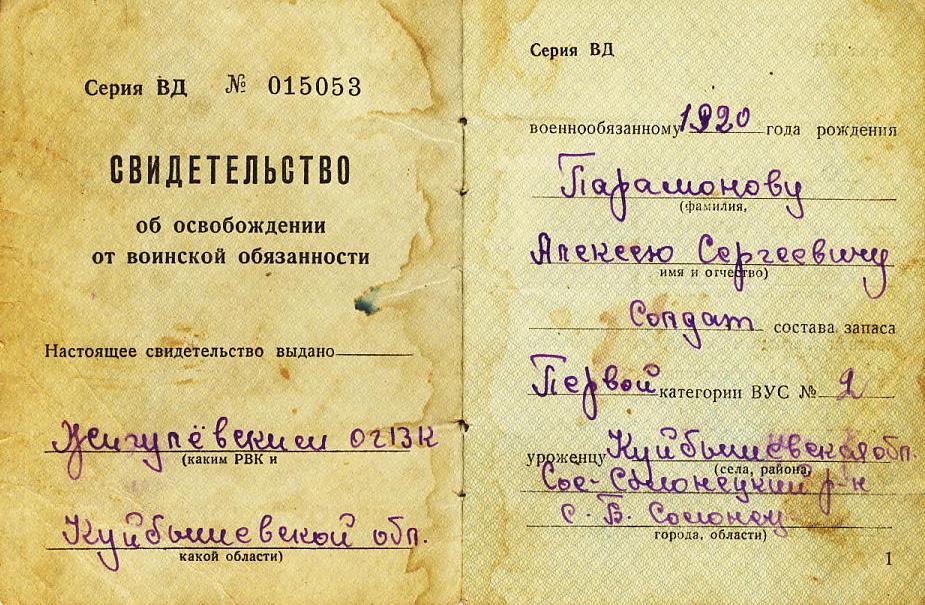 Серия ВД № 015053
СВИДЕТЕЛЬСТВО
об освобождении
от воинской обязанности
Настоящее свидетельство выдано
Жигулёвским ОГВК
(каким РВК и
Куйбышевской обл.
какой области)
Серия ВД
военнообязанному 1920 года рождения
Парамонову
(фамилия,
Алексею Сергеевичу
имя и отчество)
Солдат состава запаса
Первой категории ВУС № 1
уроженцу Куйбышевская обл.
(села, района,
р-н
с. Б.
города, области)
1